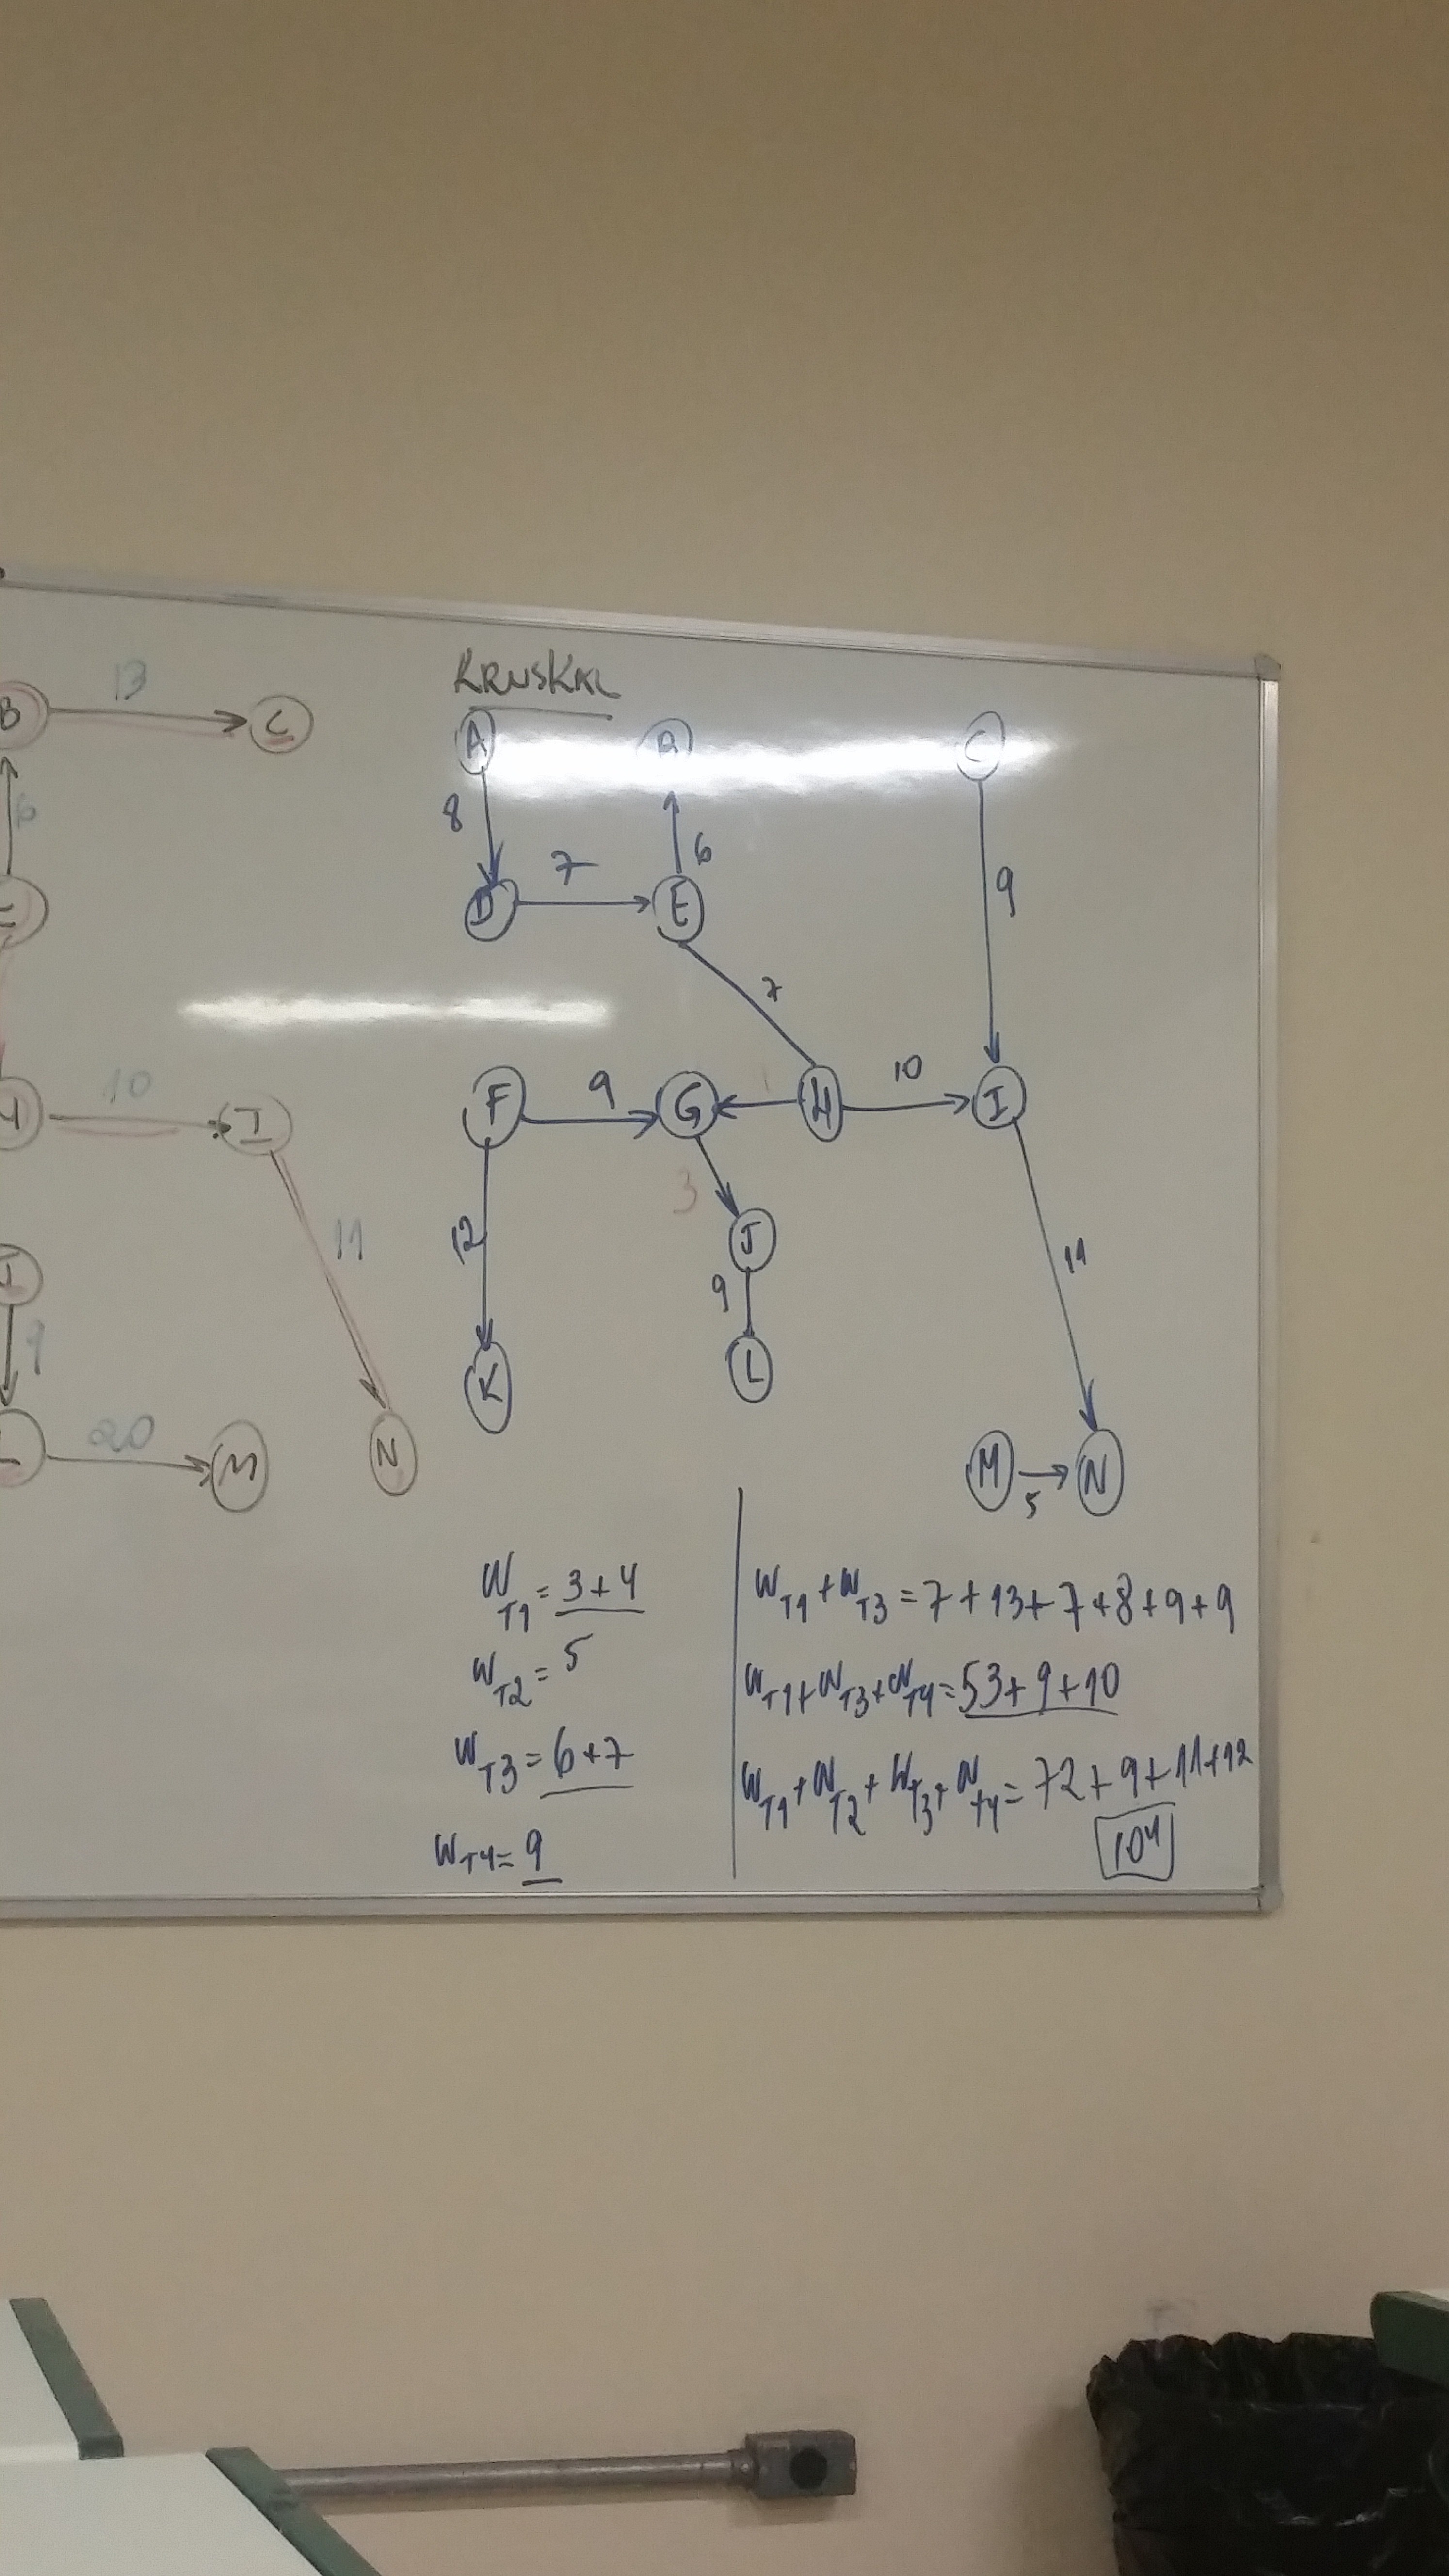 KRUSKAL
B 13 C
6
10 I
11
9
L 20 M N
A B C
8 7 6 9
D E
7
F 9 G H 10 I
3
12 J 11
9
K L
M 5 N
W T1 = 3+4
W T2 = 5
W T3 = 6+7
W T4 = 9
W T1 + W T3 = 7+13+7+8+9+9
W T1 + W T3 + W T4 = 53+9+10
W T1 + W T2 + W T3 + W T4 = 72+9+11+12
104